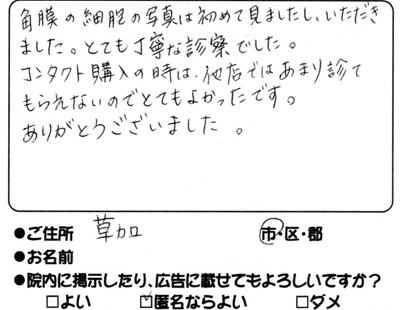 角膜の細胞の写真は初めて見ましたし、いただき
ました。とても丁寧な診察でした。
コンタクト購入の時は、他店ではあまり診て
もらえないのでとてもよかったです。
ありがとうございました 。
●ご住所 草加 市・区・郡
●お名前
●院内に掲示したり、広告に載せてもよろしいですか?
□よい ☑匿名ならよい □ダメ